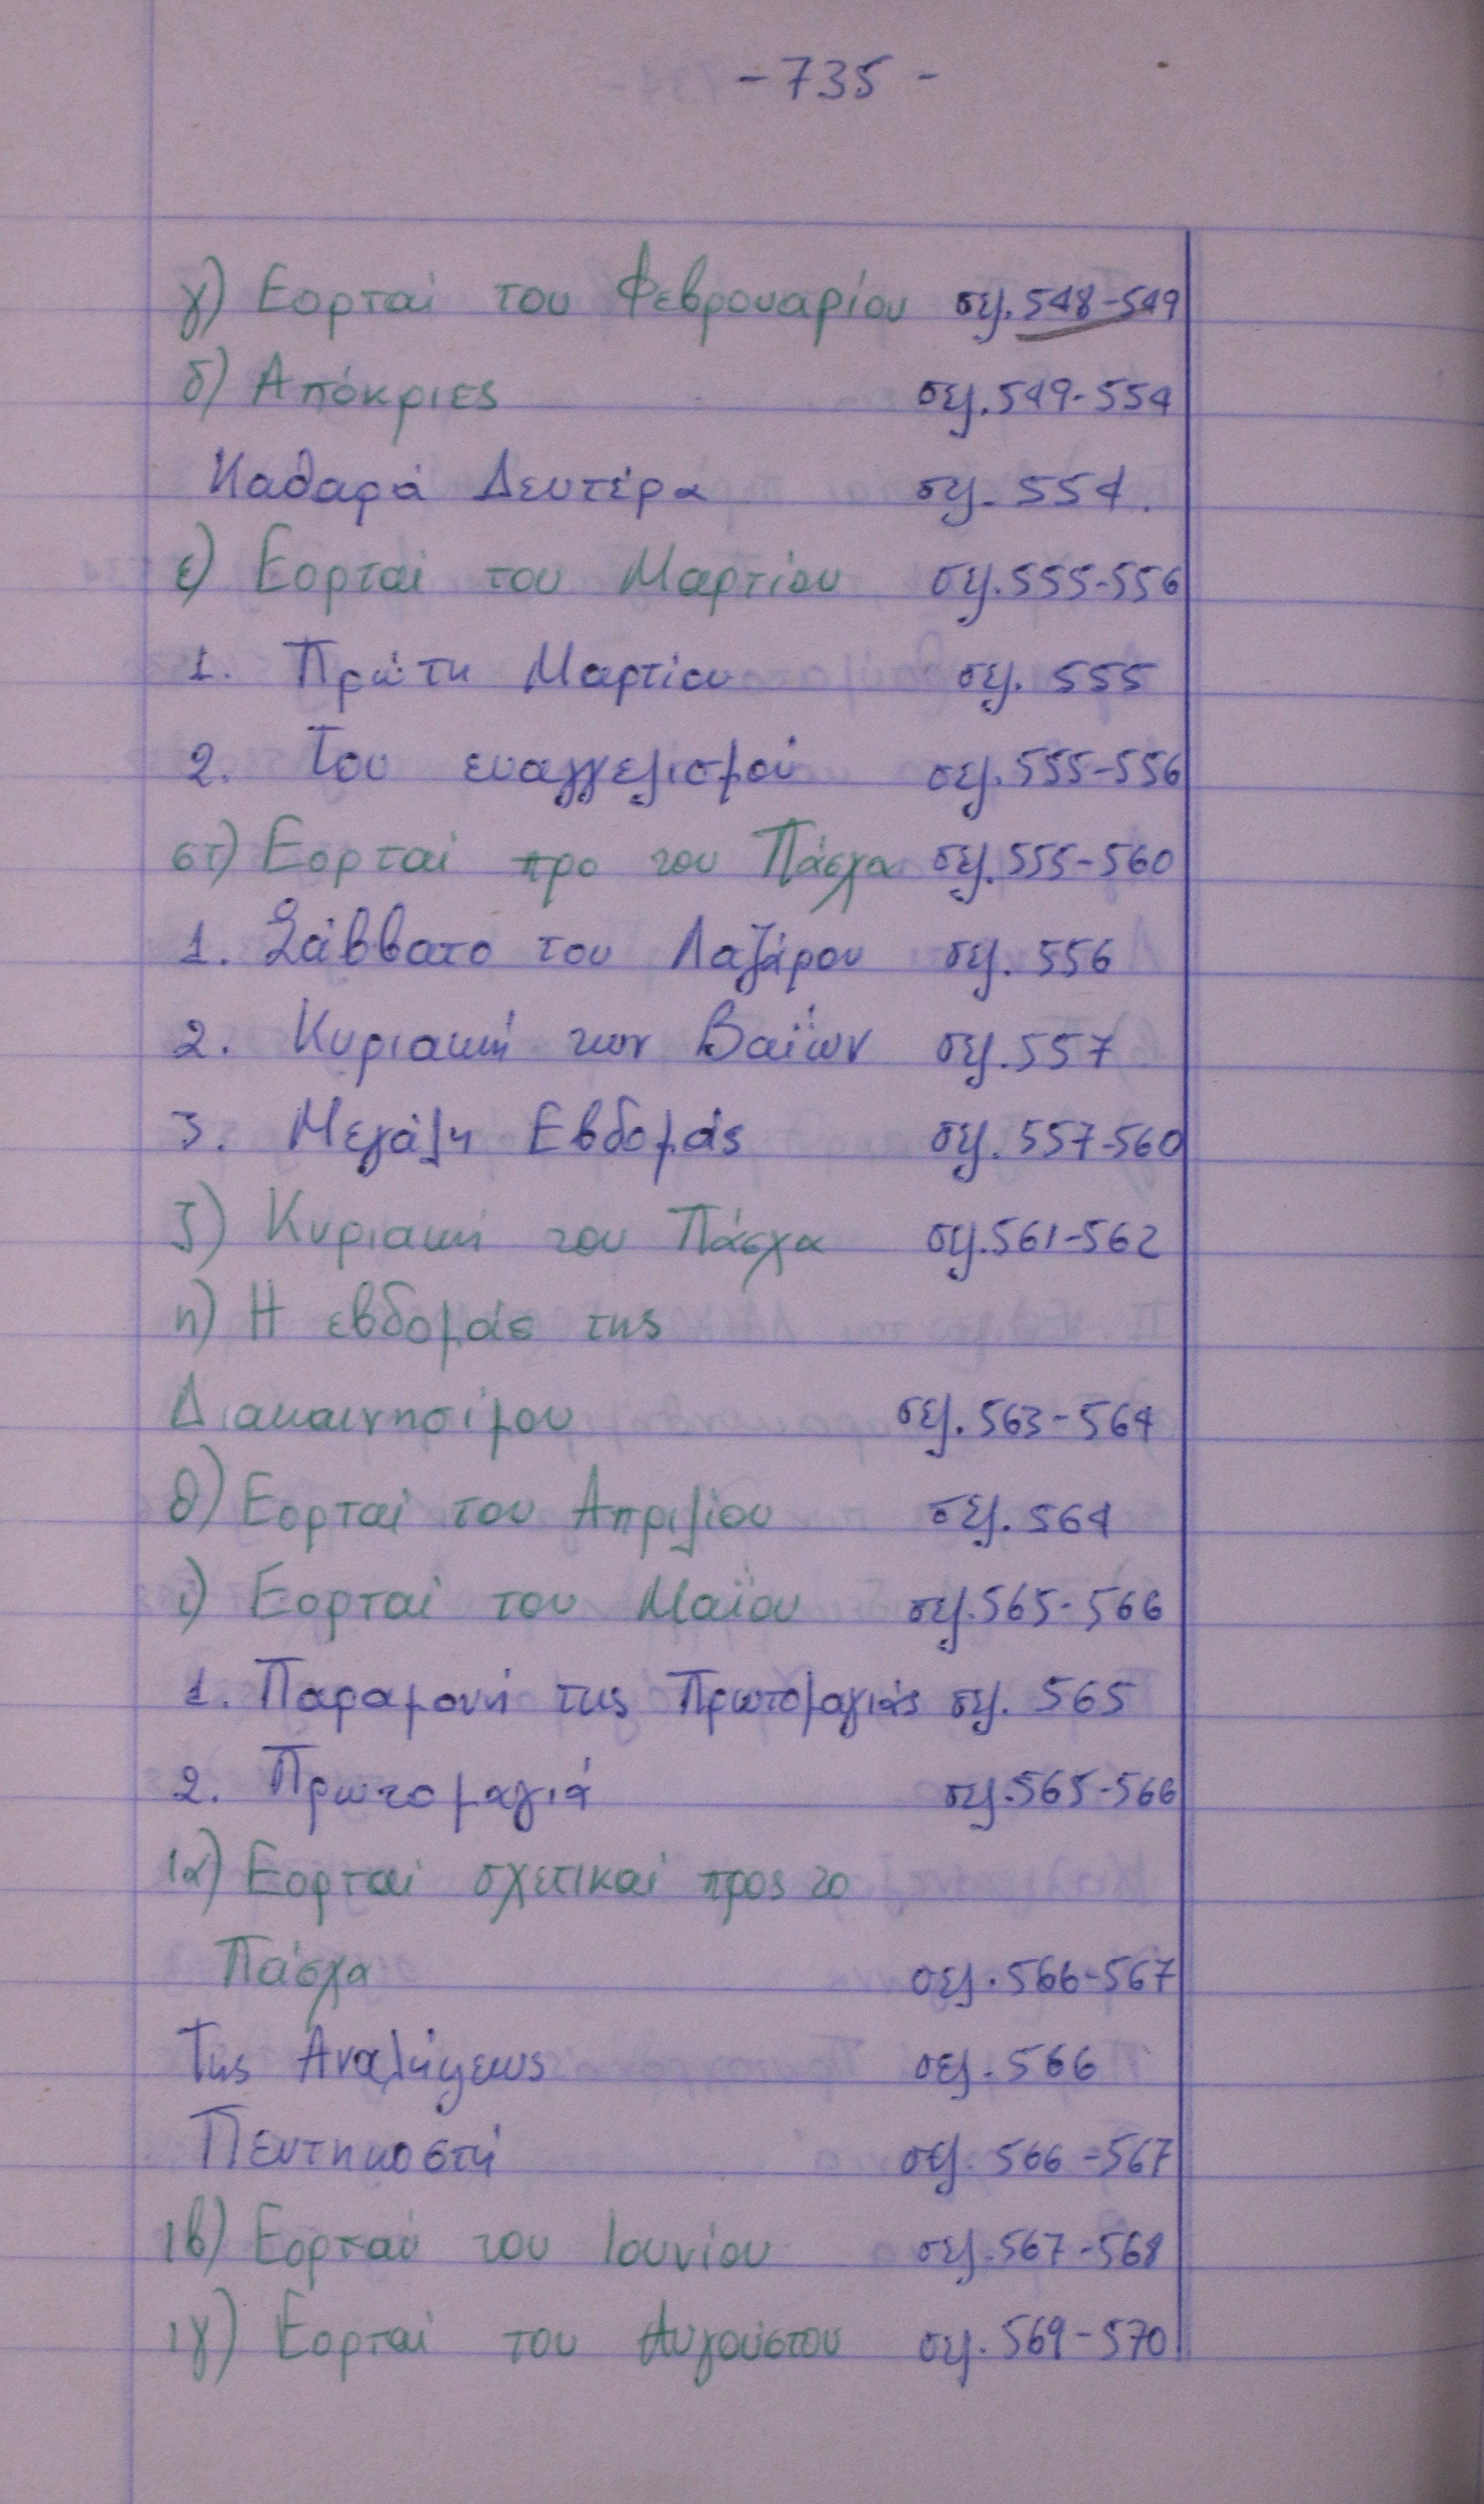 - 735 -
γ) Εορταί του Φεβρουαρίου σελ. 548-549
δ) Απόκριες σελ. 549-554
Καθαρά Δευτέρα σελ. 554.
ε) Εορταί του Μαρτίου σελ. 555-556
1. Πρώτη Μαρτίου σελ. 555
2. Του ευαγγελισμού σελ. 555-556
στ) Εορταί προ του Πάσχα σελ. 555-560
1. Σάββατο του Λαζάρου σελ. 556
2. Κυριακή των Βαΐων σελ. 557
3. Μεγάλη Εβδομάς σελ. 557-560
ζ) Κυριακή του Πάσχα σελ. 561-562
η) Η εβδομάς της
Διακαινησίμου σελ. 563-564
θ) Εορταί του Απριλίου σελ. 564
ι) Εορταί του Μαΐου σελ. 565-566
1. Παραμονή της Πρωτομαγιάς σελ. 565
2. Πρωτομαγιά σελ. 565-566
ια) Εορταί σχετικαί προς το
Πάσχα σελ. 566-567
Της Αναλήψεως σελ. 566
Πεντηκοστή σελ. 566-567
ιβ) Εορταί του Ιουνίου σελ. 567-568
ιγ) Εορταί του Αυγούστου σελ. 569-570